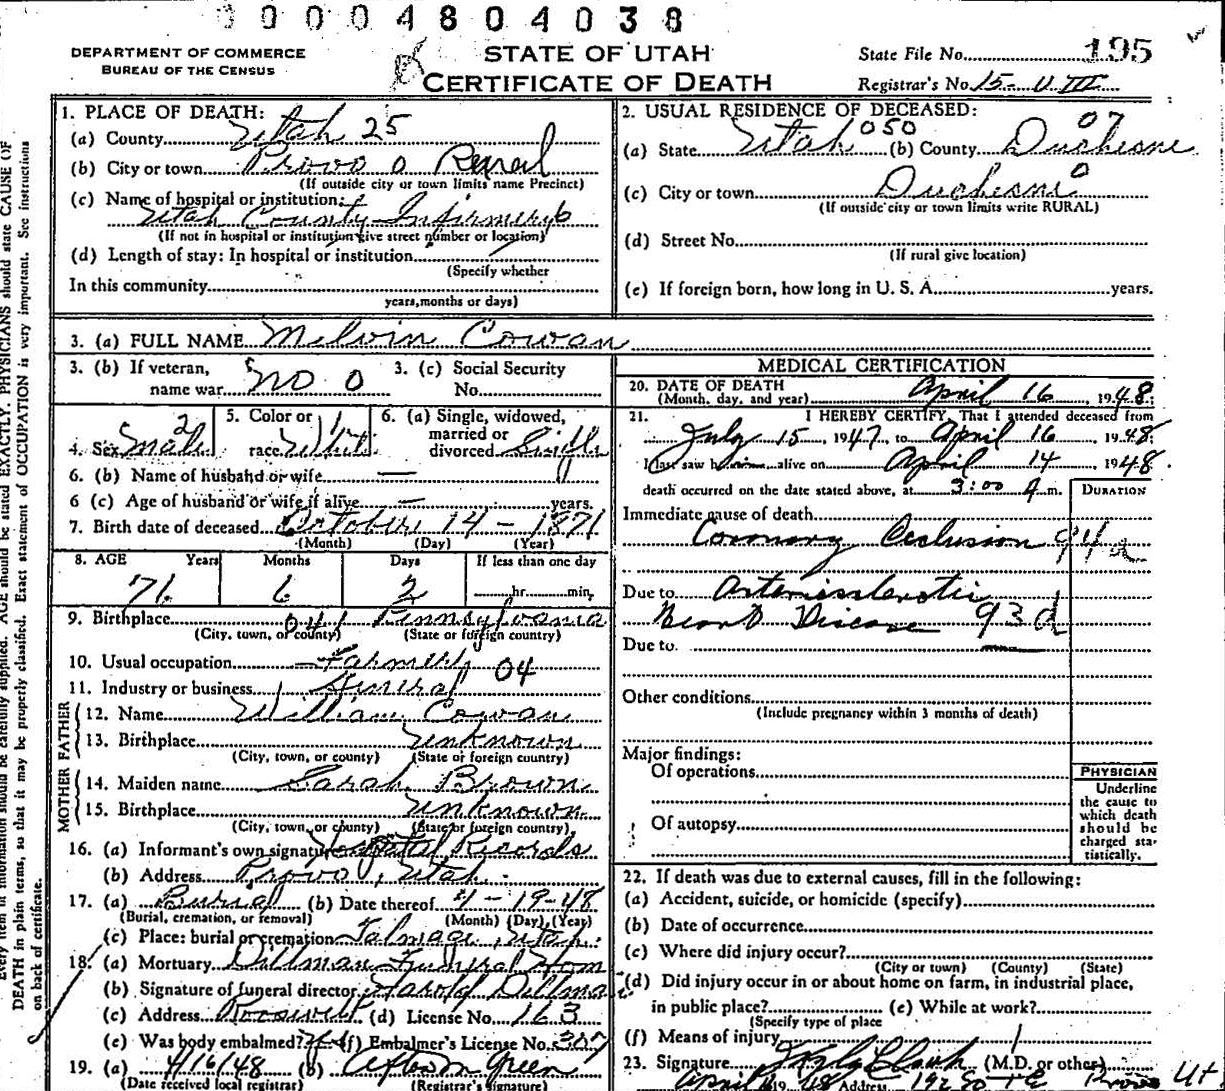 0 0 0 0 4 8 0 4 0 3 8
DEPARTMENT OF COMMERCE
BUREAU OF THE CENSUS
STATE OF UTAH
CERTIFICATE OF DEATH
State File No. 195
Registrar's No. 15-
1. PLACE OF DEATH:
(a) County Utah 25
(b) City or town Provo 0 Rural
(If outside city or town limits name Precinct)
(c) Name of hospital or institution:
Utah County Infirmary
(If not in hospital or institution give street number or location)
(d) Length of stay: In hospital or institution
(Specify whether
In this community
years, months or days)
2. USUAL RESIDENCE OF DECEASED:
(a) State Utah 050 (b) County Duchesne 07
(c) City or town Duchesne 0
(If outside city or town limits write RURAL)
(d) Street No.
(If rural give location)
(e) If foreign born, how long in U. S. A. years.
3. (a) FULL NAME Melvin Cowan
3. (b) If veteran, name war NO 0
3. (c) Social Security No.
4. Sex Male 2
5. Color or race White 1
6. (a) Single, widowed, married or divorced Single
6. (b) Name of husband or wife —
6 (c) Age of husband or wife if alive — years.
7. Birth date of deceased October 14 - 1871
(Month) (Day) (Year)
8. AGE Years Months Days If less than one day
71 6 2 hr. min.
9. Birthplace 041 Pennsylvania
(City, town, or county) (State or foreign country)
10. Usual occupation Farmer 04
11. Industry or business General
FATHER
12. Name William Cowan
13. Birthplace Unknown
(City, town, or county) (State or foreign country)
MOTHER
14. Maiden name Sarah Brown
15. Birthplace Unknown
(City, town, or county) (State or foreign country)
16. (a) Informant's own signature Hospital Records
(b) Address Provo, Utah.
17. (a) Burial (b) Date thereof 4-19-48
(Burial, cremation, or removal) (Month) (Day) (Year)
(c) Place: burial or cremation Talmage, Utah.
18. (a) Mortuary Dillman Funeral Hom
(b) Signature of funeral director Harold Dillman
(c) Address Roosevelt (d) License No. 163
(e) Was body embalmed? (f) Embalmer's License No. 307
19. (a) 4/16/48 (b) Afton Green
(Date received local registrar) (Registrar's signature)
MEDICAL CERTIFICATION
20. DATE OF DEATH
(Month, day, and year) April 16, 1948
21. I HEREBY CERTIFY, That I attended deceased from
July 15, 1947, to April 16 1948
I last saw him alive on April 14 1948.
death occurred on the date stated above, at 3:00 A m.
DURATION
Immediate cause of death
Coronary Occlusion 94a
Due to Arteriosclerotic
Heart Disease 93d
Due to
Other conditions
(Include pregnancy within 3 months of death)
Major findings:
Of operations
Of autopsy
PHYSICIAN
Underline
the cause to
which death
should be
charged sta-
tistically.
22. If death was due to external causes, fill in the following:
(a) Accident, suicide, or homicide (specify)
(b) Date of occurrence
(c) Where did injury occur?
(City or town) (County) (State)
(d) Did injury occur in or about home on farm, in industrial place,
in public place? (e) While at work?
(Specify type of place
(f) Means of injury
23. Signature Clark (M.D. or other)
April 1948 Address Provo Ut
Every item of information should be carefully supplied. AGE should be stated EXACTLY. PHYSICIANS should state CAUSE OF
DEATH in plain terms, so that it may be properly classified. Exact statement of OCCUPATION is very important. See instructions
on back of certificate.